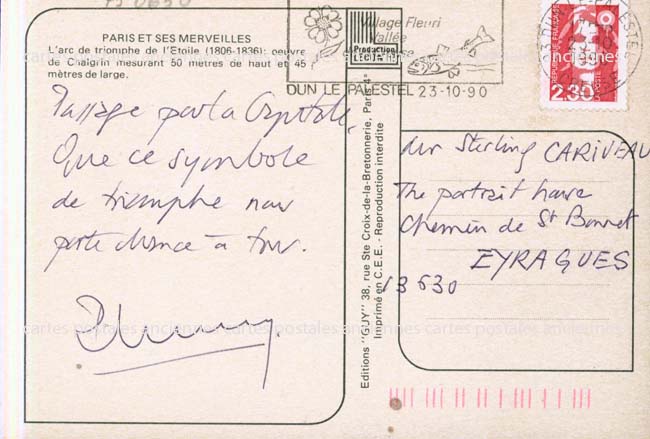 PARIS ET SES MERVEILLES
L'arc de triomphe de l'Etoile (1806-1836): oeuvre
de Chalgrin mesurant 50 mètres de haut et 45
mètres de large.
Passage par la Capitale.
Que ce symbole
de triomphe nous
porte chance à tous.
Village Fleuri
Vallée
Production
LECONTE
DUN LE PALESTEL 23-10-90
REPUBLIQUE FRANÇAISE
LA POSTE
2,30
Editions "GUY" 38, rue Ste Croix-de-la-Bretonnerie, Paris 4e
Imprimé en C.E.E. - Reproduction interdite
Mr Sterling CARIVEAU
The portrait house
Chemin de St Bonnet
EYRAGUES
13630
cartes postales anciennes cartes postales anciennes cartes postales anciennes